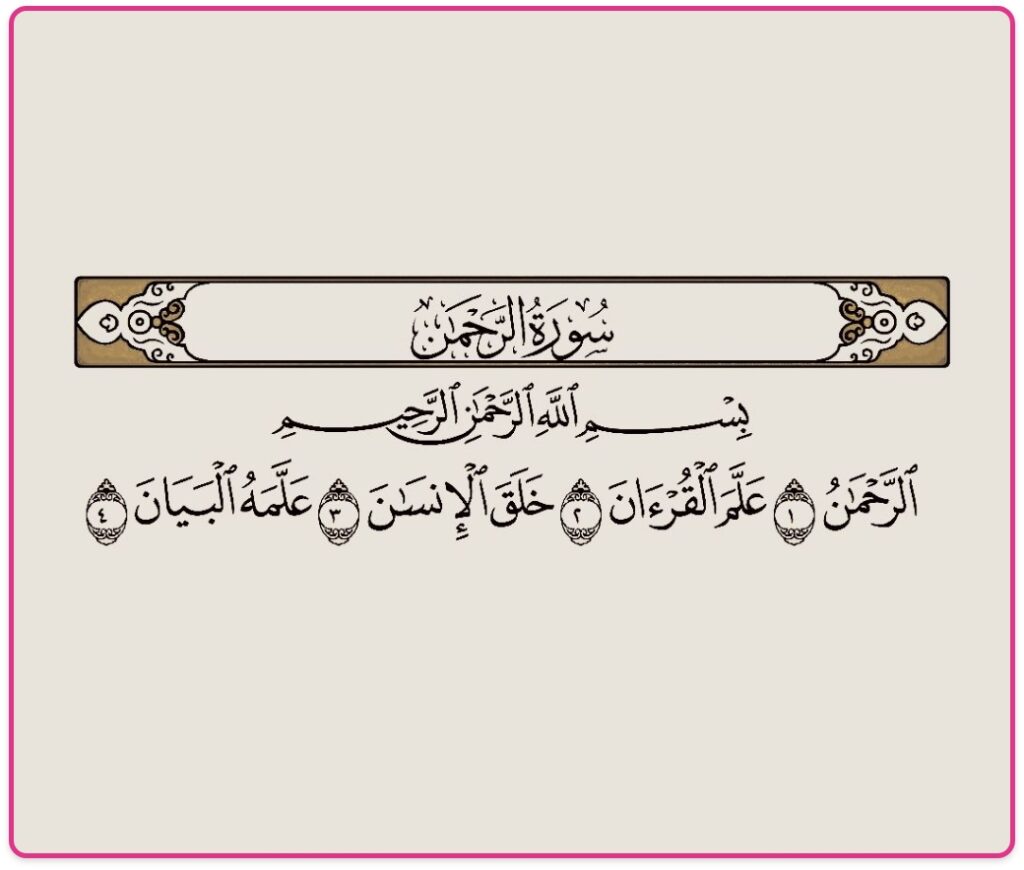 سُورَةُ الرَّحْمَٰن
بِسْمِ ٱللَّهِ ٱلرَّحْمَٰنِ ٱلرَّحِيمِ
ٱلرَّحْمَٰنُ ١ عَلَّمَ ٱلْقُرْءَانَ ٢ خَلَقَ ٱلْإِنسَٰنَ ٣ عَلَّمَهُ ٱلْبَيَانَ ٤